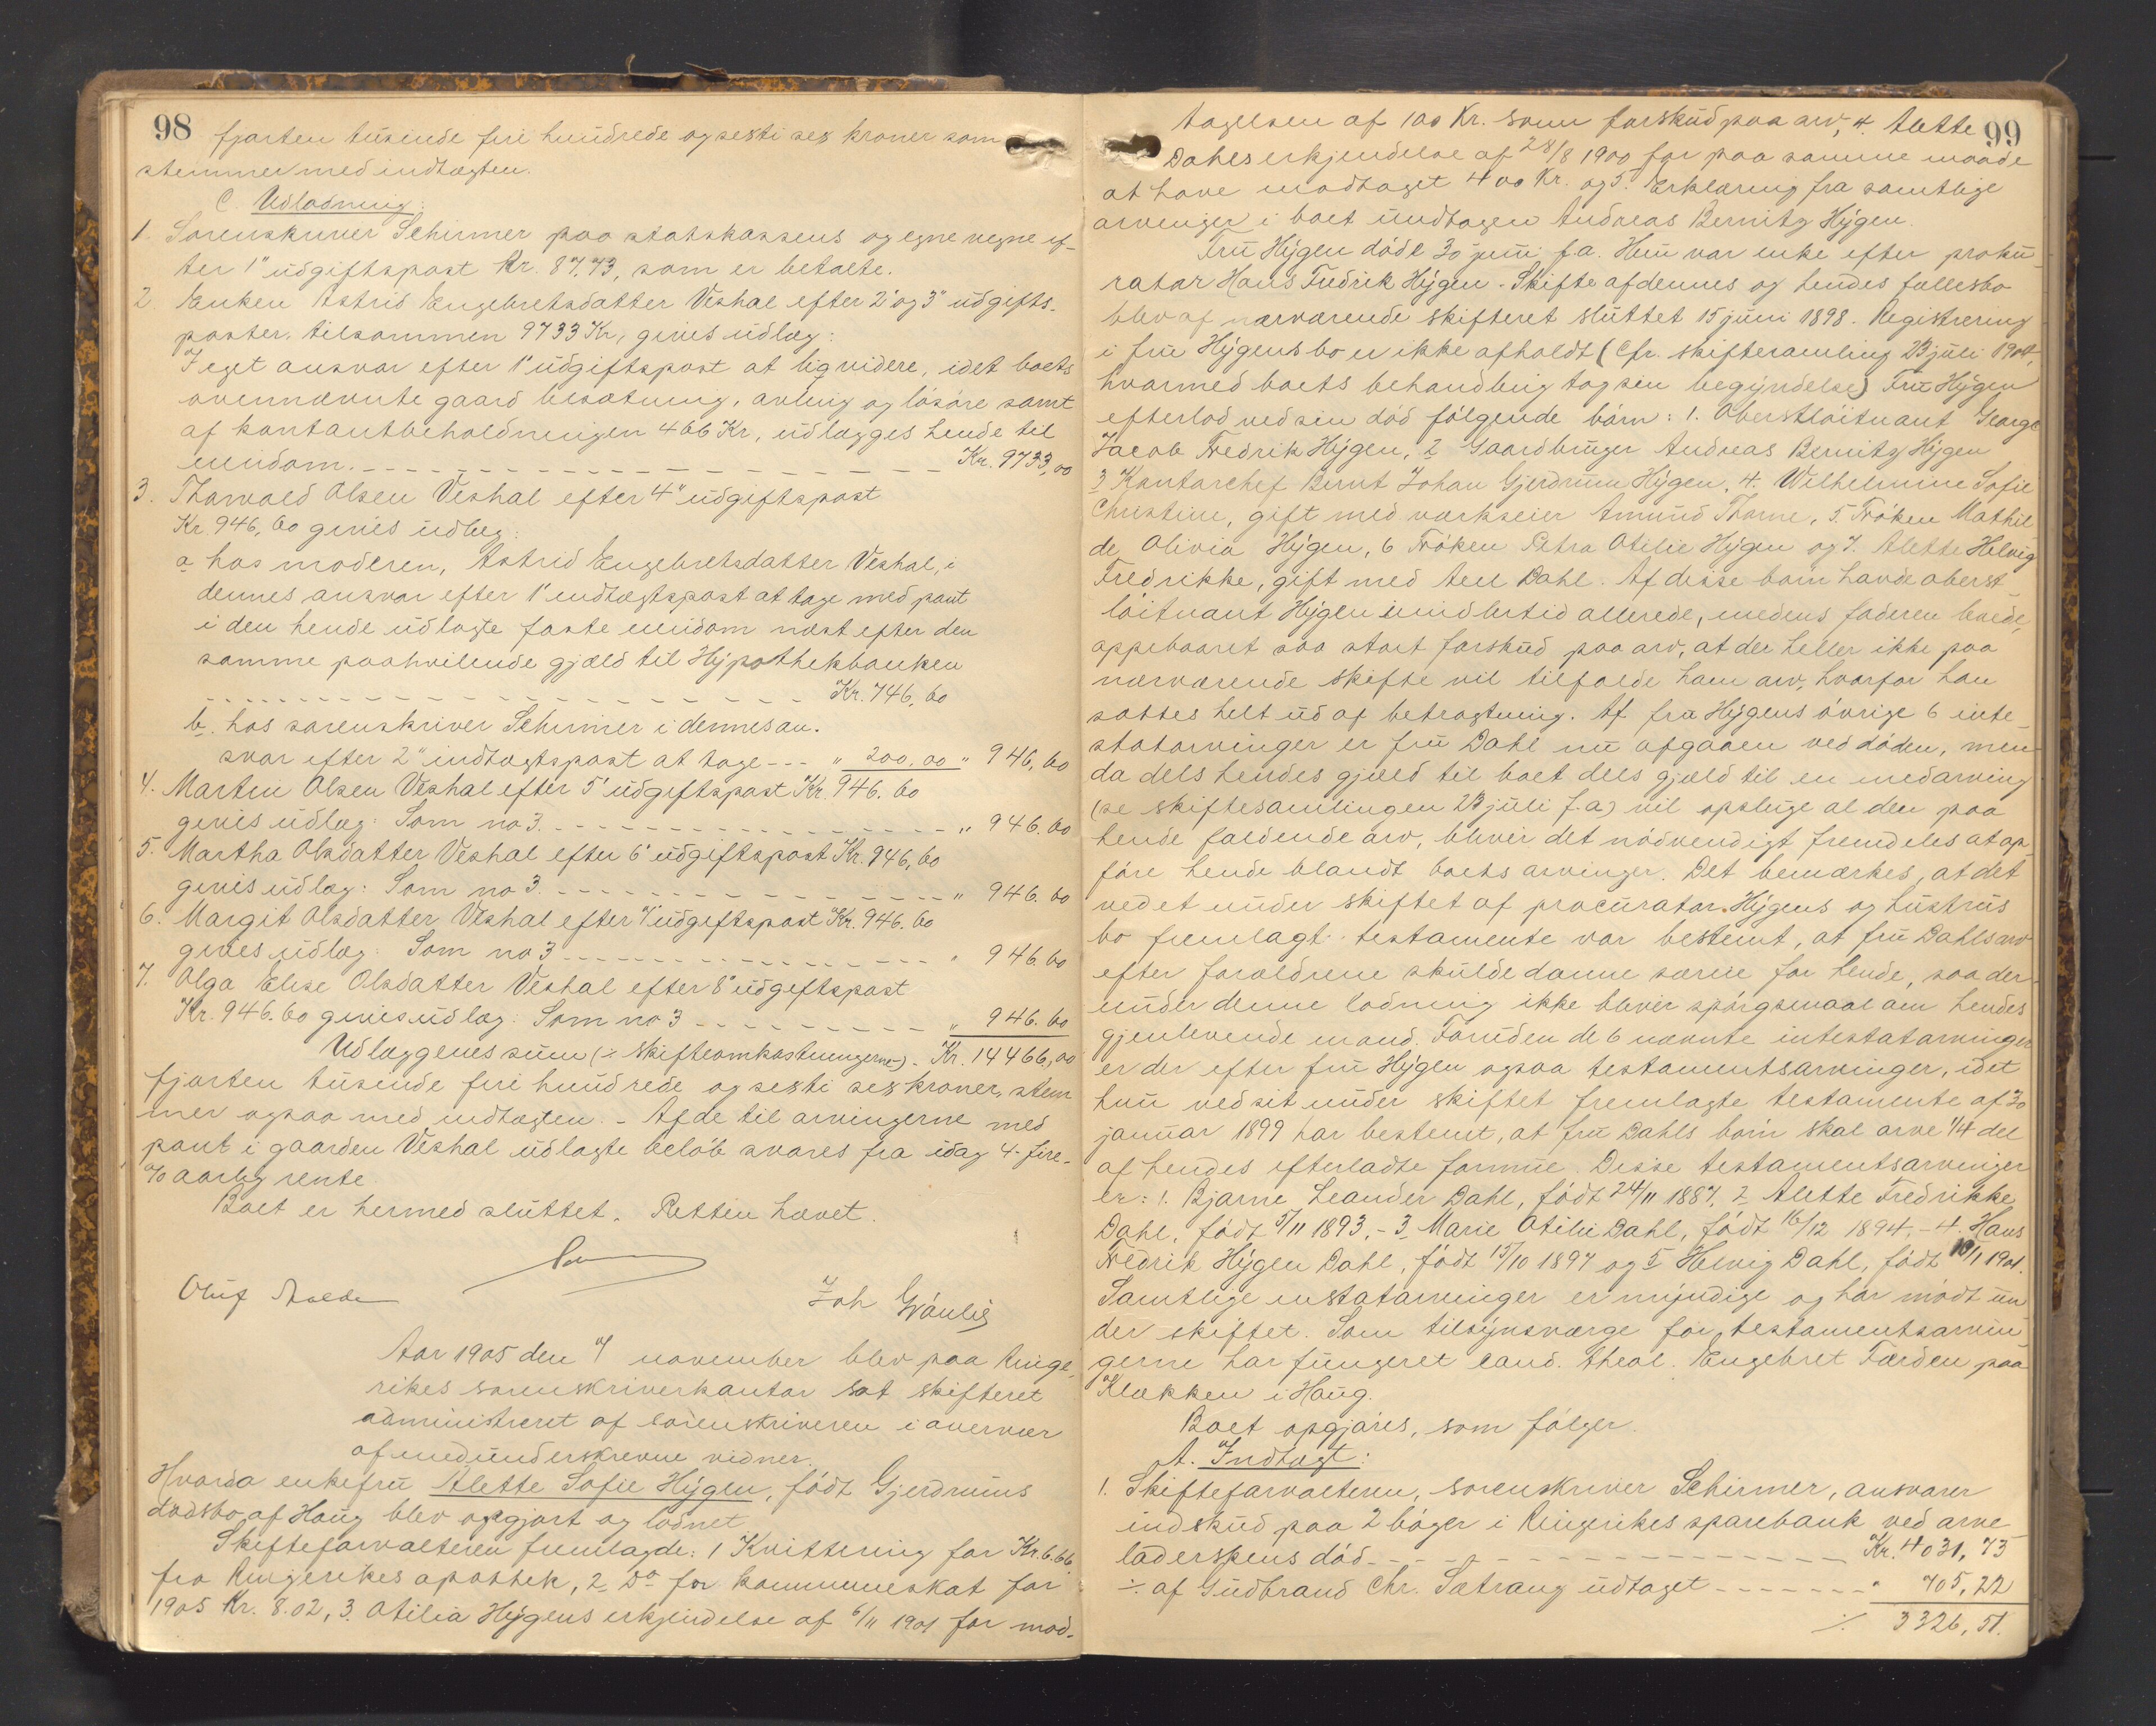 98
fjorten tusinde fire hundrede og sexti sex kroner som
stemmer med indtægten.
C. Udlodning:
1. Sorenskriver Schirmer paa statskassens og egne vegne ef-
ter 1" udgiftspost Kr. 87,73, som er betalte.
2. Enken Astrid Engebretsdatter Veshal efter 2" og 3" udgifts-
poster, tilsammen 9733 Kr, gives udlæg:
I eget ansvar efter 1" udgiftspost at liqvidere, idet boets
ovennævnte gaard besætning, avling og løsøre samt
af kontantbeholdningen 466 Kr, udlægges hende til
eiendom. Kr. 9733,00
3. Thorvald Olsen Veshal efter 4" udgiftspost
Kr. 946,60 gives udlæg:
a hos moderen, Astrid Engebretsdatter Veshal, i
dennes ansvar efter 1" indtægtspost at tage med pant
i den hende udlagte faste eiendom næst efter den
samme paahvilende gjæld til Hypothekbanken
Kr. 746,60
b. hos sorenskriver Schirmer i dennes an-
svar efter 2" indtægtspost at tage - - - " 200,00 " 946,60
4. Martin Olsen Veshal efter 5" udgiftspost Kr. 946.60
gives udlæg: Som no 3. " 946.60
5. Martha Olsdatter Veshal efter 6" udgiftspost Kr. 946,60
gives udlæg: Som no 3. " 946.60
6. Margit Olsdatter Veshal efter 7" udgiftspost Kr. 946.60
gives udlæg: Som no 3 " 946.60
7. Olga Elise Olsdatter Veshal efter 8" udgiftspost
Kr. 946.60 gives udlæg: Som no 3 " 946.60
Udlæggenes sum (÷ skifteomkostningerne). Kr. 14466,00
fjorten tusinde fire hundrede og sexti sex kroner, stem
mer ogsaa med indtægten. - Af de til arvingerne med
pant i gaarden Veshal udlagte beløb svares fra idag 4 - fire -
% aarlig rente.
Boet er hermed sluttet. Retten hævet.
Oluf
Joh
Aar 1905 den 7 november blev paa Ringe-
rikes sorenskriverkontor sat skifteret
administreret af sorenskriveren i overvær
af medunderskrevne vidner.
Hvorda enkefru Alette Sofie Hygen, født Gjerdrums
dødsbo af Haug blev opgjort og lodnet.
Skifteforvalteren fremlagde: 1 Kvittering for Kr. 6.66
fra Ringerikes apothek, 2. Do for kommuneskat for
1905 Kr. 8.02, 3. Otilia Hygens erkjendelse af 6/11 1901 for mod-
99
tagelsen af 100 Kr. som forskud paa arv, 4. Alette
Dahls erkjendelse af 28/8 1900 for paa samme maade
at have modtaget 400 Kr. og 5. Erklæring fra samtlige
arvinger i boet undtagen Andreas Bernitz Hygen.
Fru Hygen døde 30 juni f.a. Hun var enke efter proku-
rator Hans Fredrik Hygen. Skifte af dennes og hendes fællesbo
blev af nærværende skifteret sluttet 15 juni 1898. Registrering
i fru Hygens bo er ikke afholdt (Cfr. skiftesamling 23 juli 1904,
hvormed boets behandling tog sin begyndelse) Fru Hygen
efterlod ved sin død følgende børn: 1. Oberstløitnant George
Jacob Fredrik Hygen, 2 Gaardbruger Andreas Bernitz Hygen
3 Kontorchef Bernt Johan Gjerdrum Hygen, 4. Wilhelmine Sofie
Christine, gift med værkseier Amund Thorne, 5. Frøken Mathil
de Olivia Hygen, 6 Frøken Petra Otilie Hygen og 7. Alette Helvig
Fredrikke, gift med Axel Dahl. Af disse børn havde oberst-
løitnant Hygen imidlertid allerede, medens faderen levede,
oppebaaret saa stort forskud paa arv, at der heller ikke paa
nærværende skifte vil tilfalde ham arv, hvorfor han
sættes helt ud af betragtning. Af fru Hygens øvrige 6 inte-
statarvinger er fru Dahl nu afgaaen ved døden, men
da dels hendes gjæld til boet dels gjæld til en medarving
(se skiftesamlingen 23 juli f.a) vil opsluge al den paa
hende faldende arv, bliver det nødvendigt fremdeles at op-
føre hende blandt boets arvinger. Det bemærkes, at det
ved et under skiftet af procurator Hygens og hustrus
bo fremlagt testamente var bestemt, at fru Dahls arv
efter forældrene skulde danne særeie for hende, saa der
under denne lodning ikke bliver spørgsmaal om hendes
gjenlevende mand. Foruden de 6 nævnte intestatarvinger
er der efter fru Hygen ogsaa testamentsarvinger, idet
hun ved sit under skiftet fremlagte testamente af 30
januar 1899 har bestemt, at fru Dahls børn skal arve 1/4 del
af hendes efterladte formue. Disse testamentsarvinger
er: 1. Bjarne Leander Dahl, født 24/11 1887, 2 Alette Fredrikke
Dahl, født 5/11 1893, - 3 Marie Otilie Dahl, født 16/12 1894, - 4. Hans
Fredrik Hygen Dahl, født 15/10 1897 og 5 Helvig Dahl, født 10/1 1901.
Samtlige instatarvinger er myndige og har mødt un
der skiftet. Som tilsynsværge for testamentsarvin
gerne har fungeret cand. theol. Engebret Færden paa
Klækken i Haug.
Boet opgjøres, som følger.
A. Indtægt:
1. Skifteforvalteren, sorenskriver Schirmer, ansvarer
indskud paa 2 bøger i Ringerikes sparebank ved arve
laderskens død Kr. 4031,73
÷ af Gudbrand Chr. Sætrang udtaget " 705,22
÷ 3326,51.